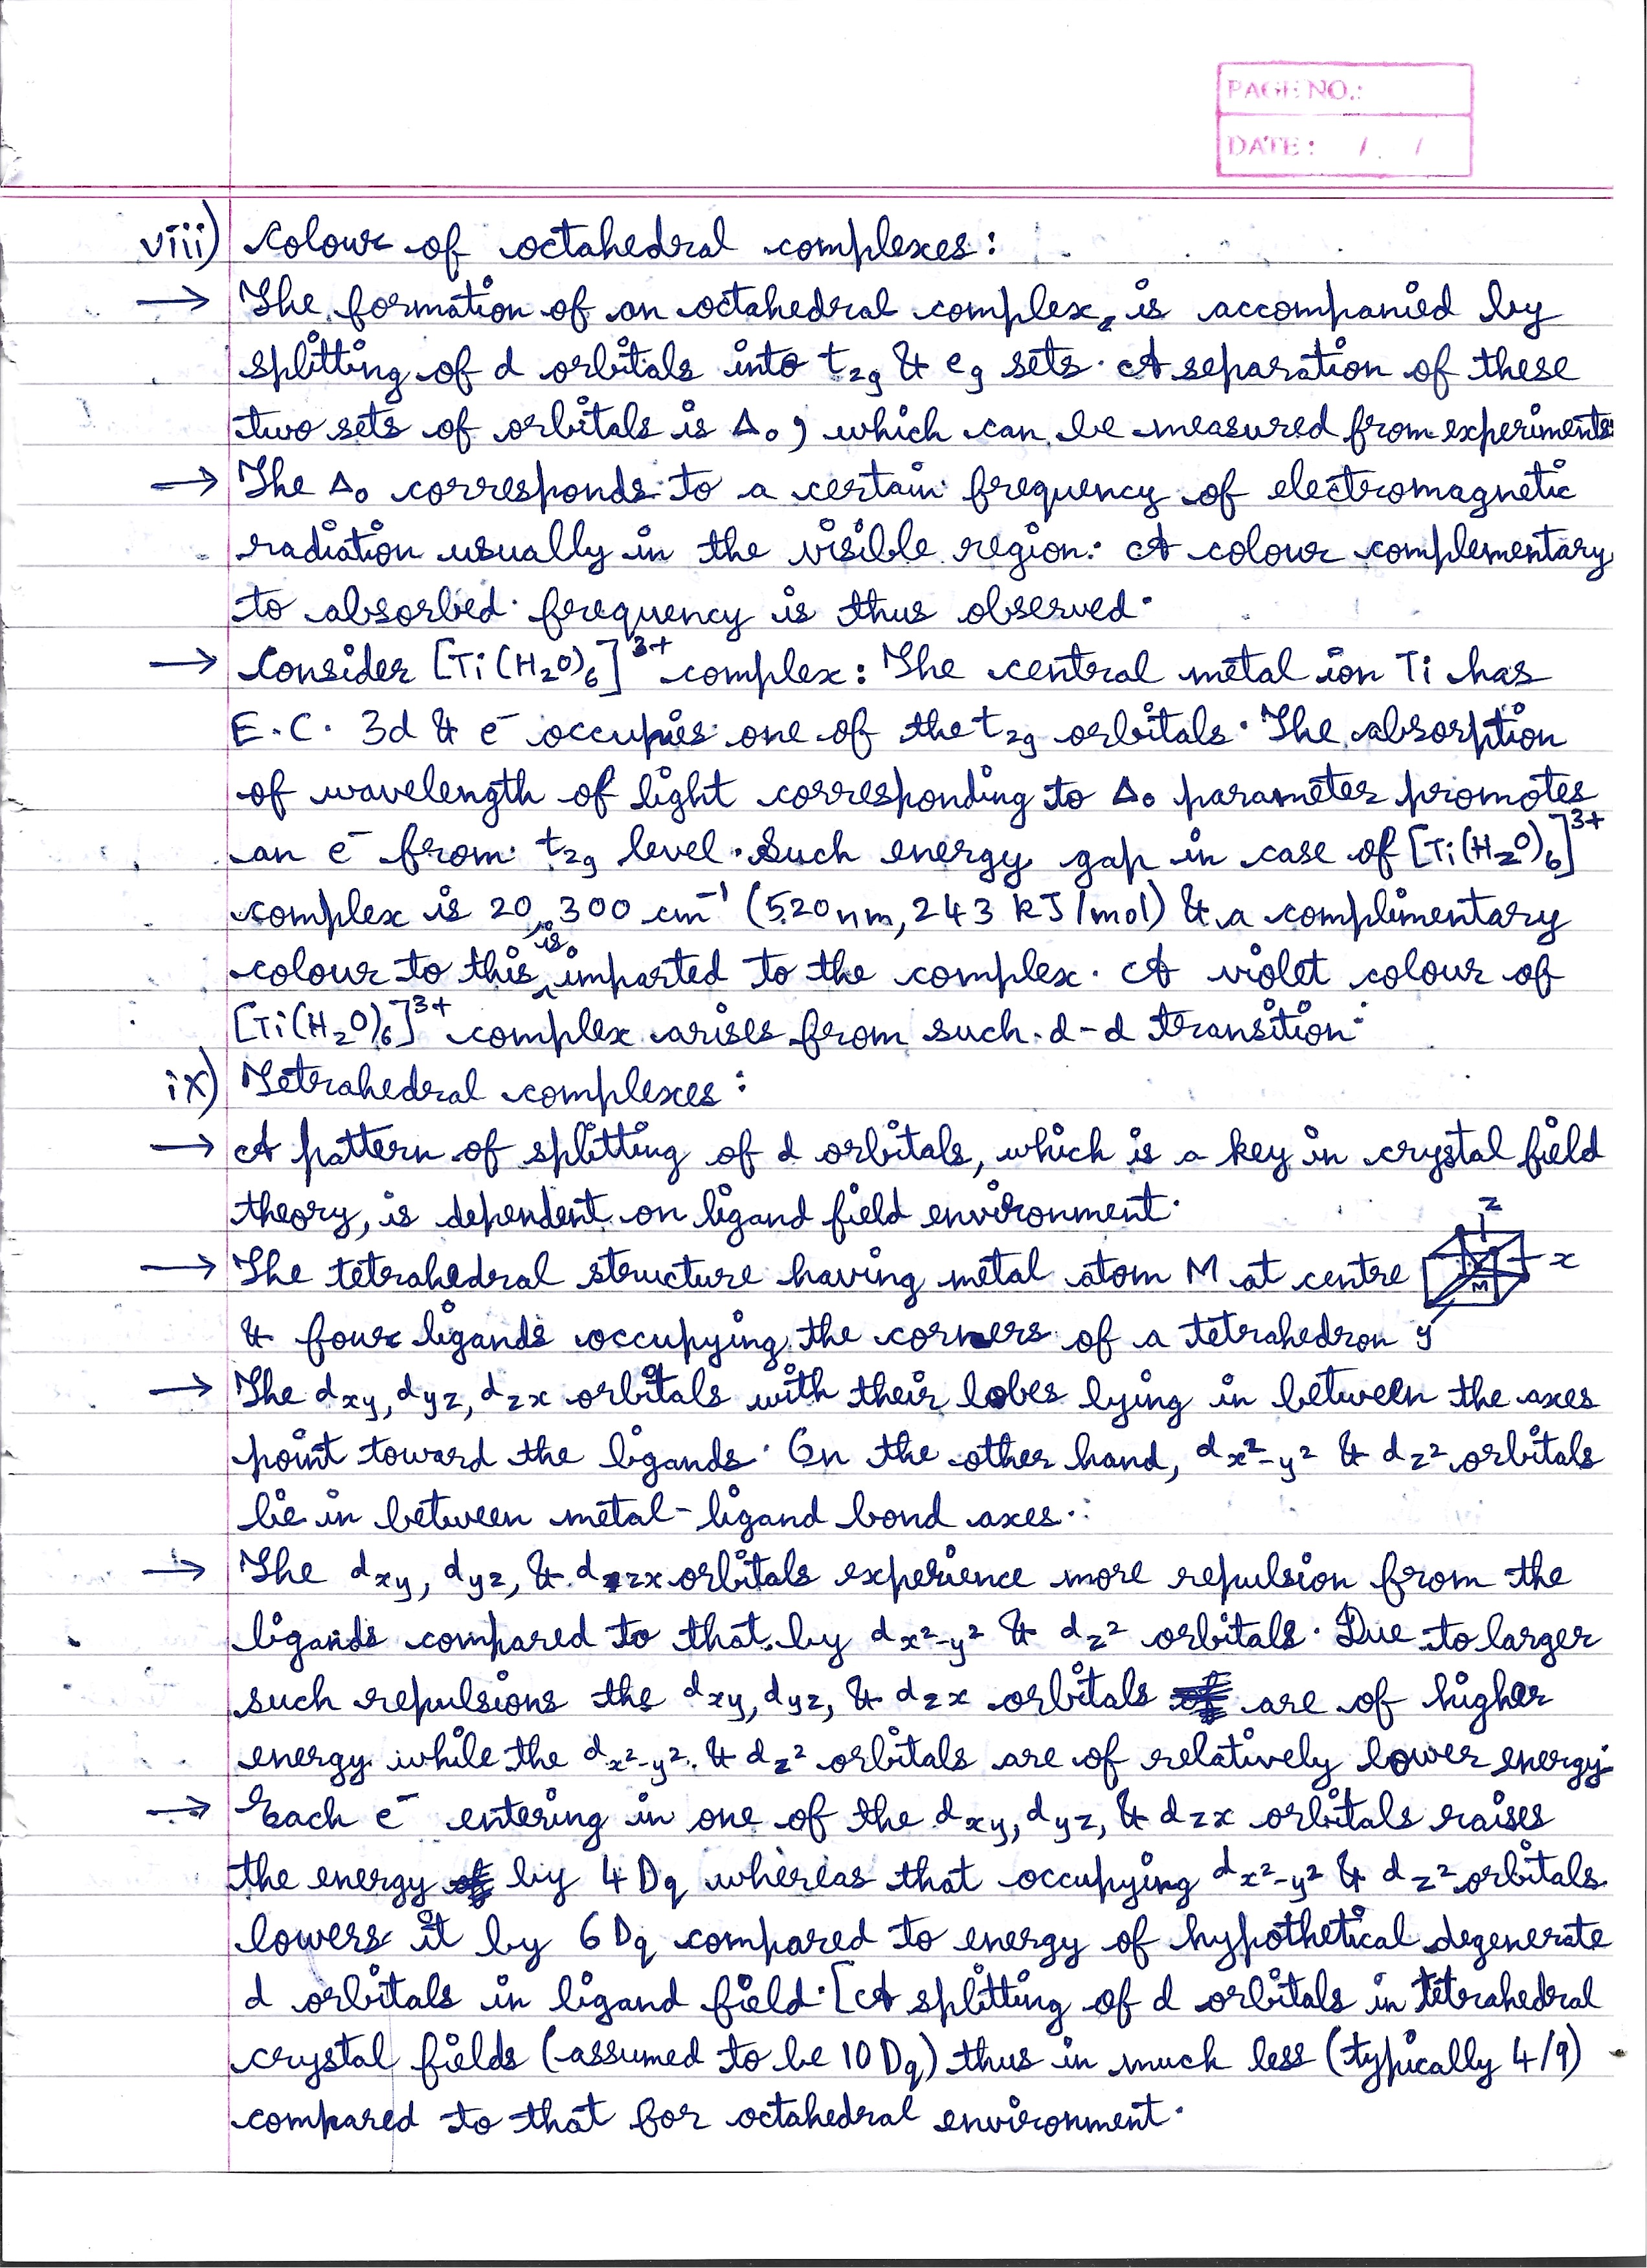 PAGE NO.:
DATE: / /
viii) Colour of octahedral complexes:
→ The formation of an octahedral complex, is accompanied by
splitting of d orbitals into t2g & eg sets. A separation of these
two sets of orbitals is Δ₀, which can be measured from experiments.
→ The Δ₀ corresponds to a certain frequency of electromagnetic
radiation usually in the visible region. A colour complementary
to absorbed frequency is thus observed.
→ Consider [Ti(H₂O)₆]³⁺ complex: The central metal ion Ti has
E.C. 3d & e⁻ occupies one of the t2g orbitals. The absorption
of wavelength of light corresponding to Δ₀ parameter promotes
an e⁻ from t2g level. Such energy gap in case of [Ti(H₂O)₆]³⁺
complex is 20,300 cm⁻¹ (520nm, 243 kJ/mol) & a complimentary
colour to this is imparted to the complex. A violet colour of
[Ti(H₂O)₆]³⁺ complex arises from such d-d transition.
ix) Tetrahedral complexes:
→ A pattern of splitting of d orbitals, which is a key in crystal field
theory, is dependent on ligand field environment.
z
→ The tetrahedral structure having metal atom M at centre
x
M
& four ligands occupying the corners of a tetrahedron y
→ The dxy, dyz, dzx orbitals with their lobes lying in between the axes
point toward the ligands. On the other hand, dx²-y² & dz² orbitals
lie in between metal-ligand bond axes.
→ The dxy, dyz, & dzx orbitals experience more repulsion from the
ligands compared to that by dx²-y² & dz² orbitals. Due to larger
such repulsions the dxy, dyz, & dzx orbitals are of higher
energy while the dx²-y² & dz² orbitals are of relatively lower energy.
→ Each e⁻ entering in one of the dxy, dyz, & dzx orbitals raises
the energy by 4 Dq whereas that occupying dx²-y² & dz² orbitals
lowers it by 6 Dq compared to energy of hypothetical degenerate
d orbitals in ligand field. [A splitting of d orbitals in tetrahedral
crystal fields (assumed to be 10 Dq) thus in much less (typically 4/9)
compared to that for octahedral environment.